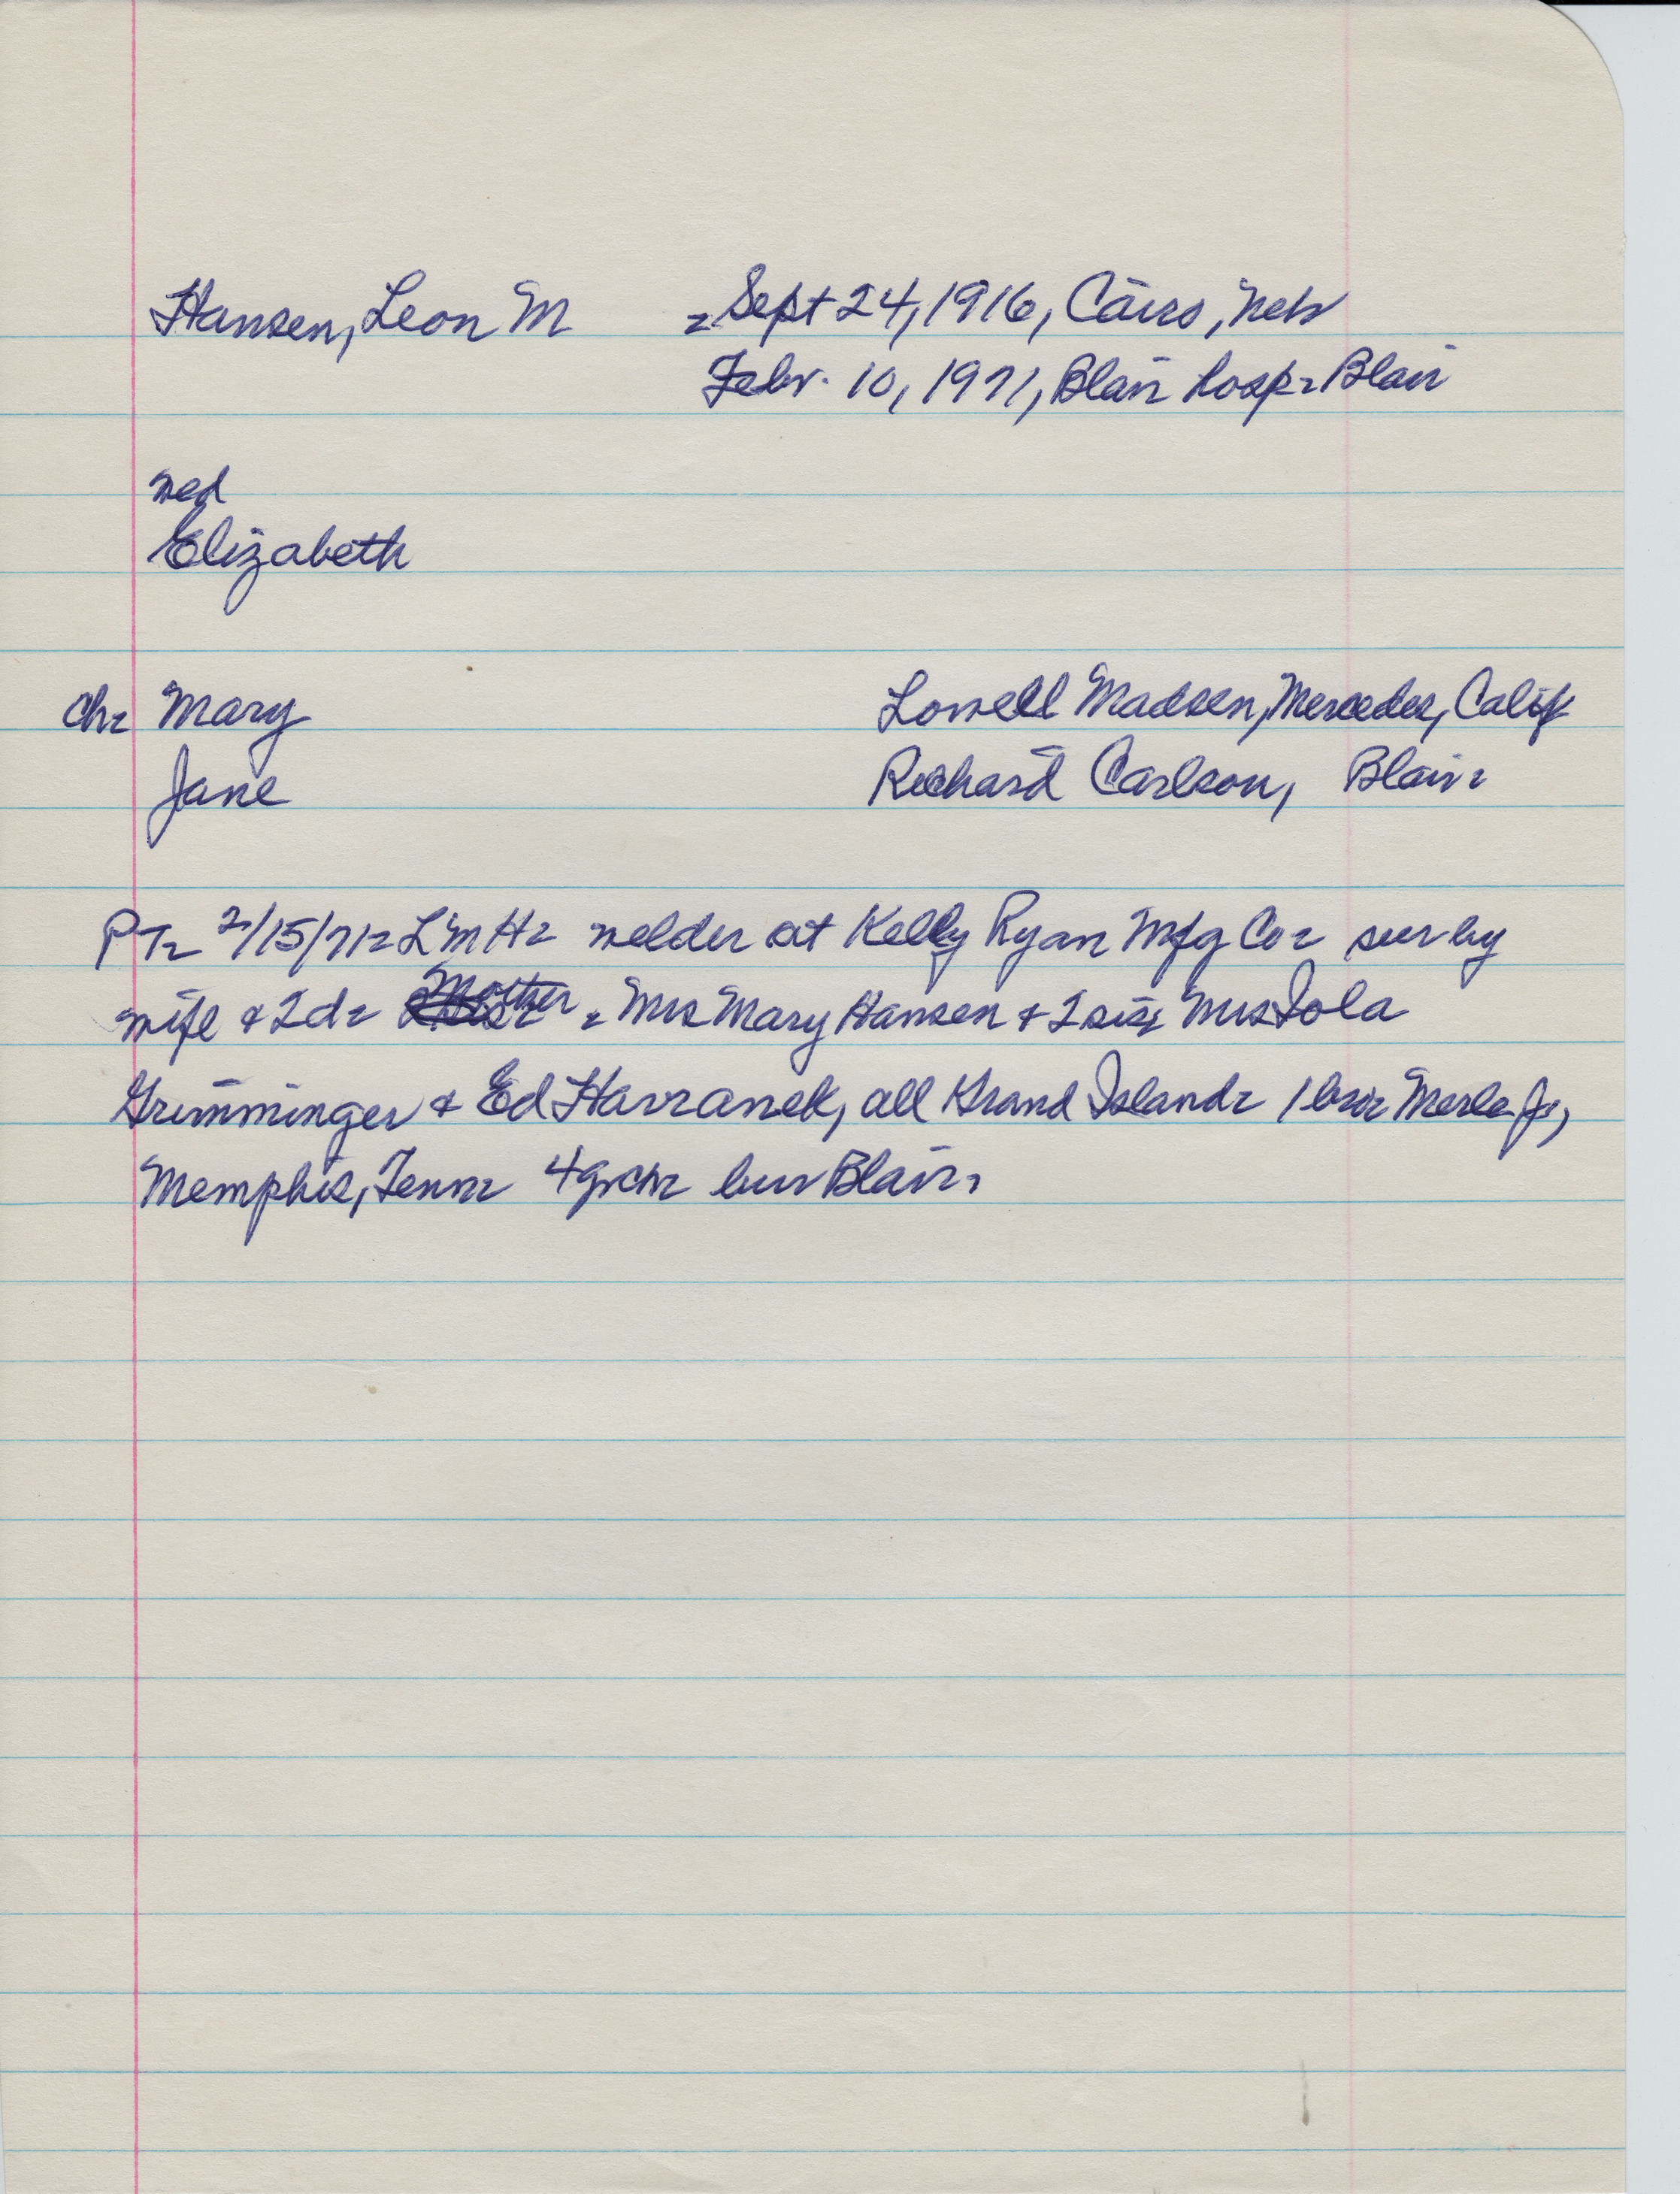 Hansen, Leon M = Sept 24, 1916, Cairo, Neb
Febr. 10, 1971, Blair hosp = Blair
wed
Elizabeth
ch= Mary Lowell Madsen, Mercedes, Calif
Jane Richard Carlson, Blair=
PT= 2/15/71= LMH= welder at Kelly Ryan Mfg Co= sur by
wife & 2d= Mother = Mrs Mary Hansen & 2 sis= Mrs Iola
Grimminger & Ed Havranek, all Grand Island= 1 bro= Merle Jr,
Memphis, Tenn= 4 grch= bur Blair=